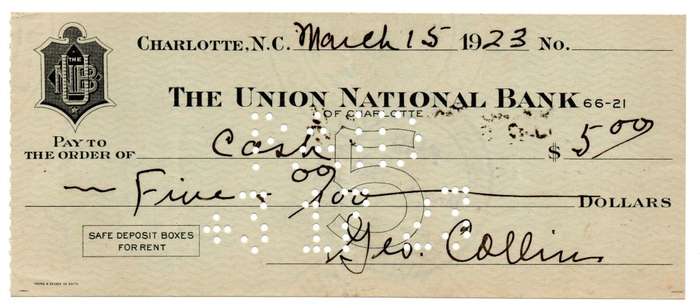 CHARLOTTE, N.C. March 15 1923 No.
THE UNB
THE UNION NATIONAL BANK 66-21
OF CHARLOTTE
PAY TO
THE ORDER OF Cash $ 5 00
Five 00/100 DOLLARS
SAFE DEPOSIT BOXES
FOR RENT
Geo. Collins